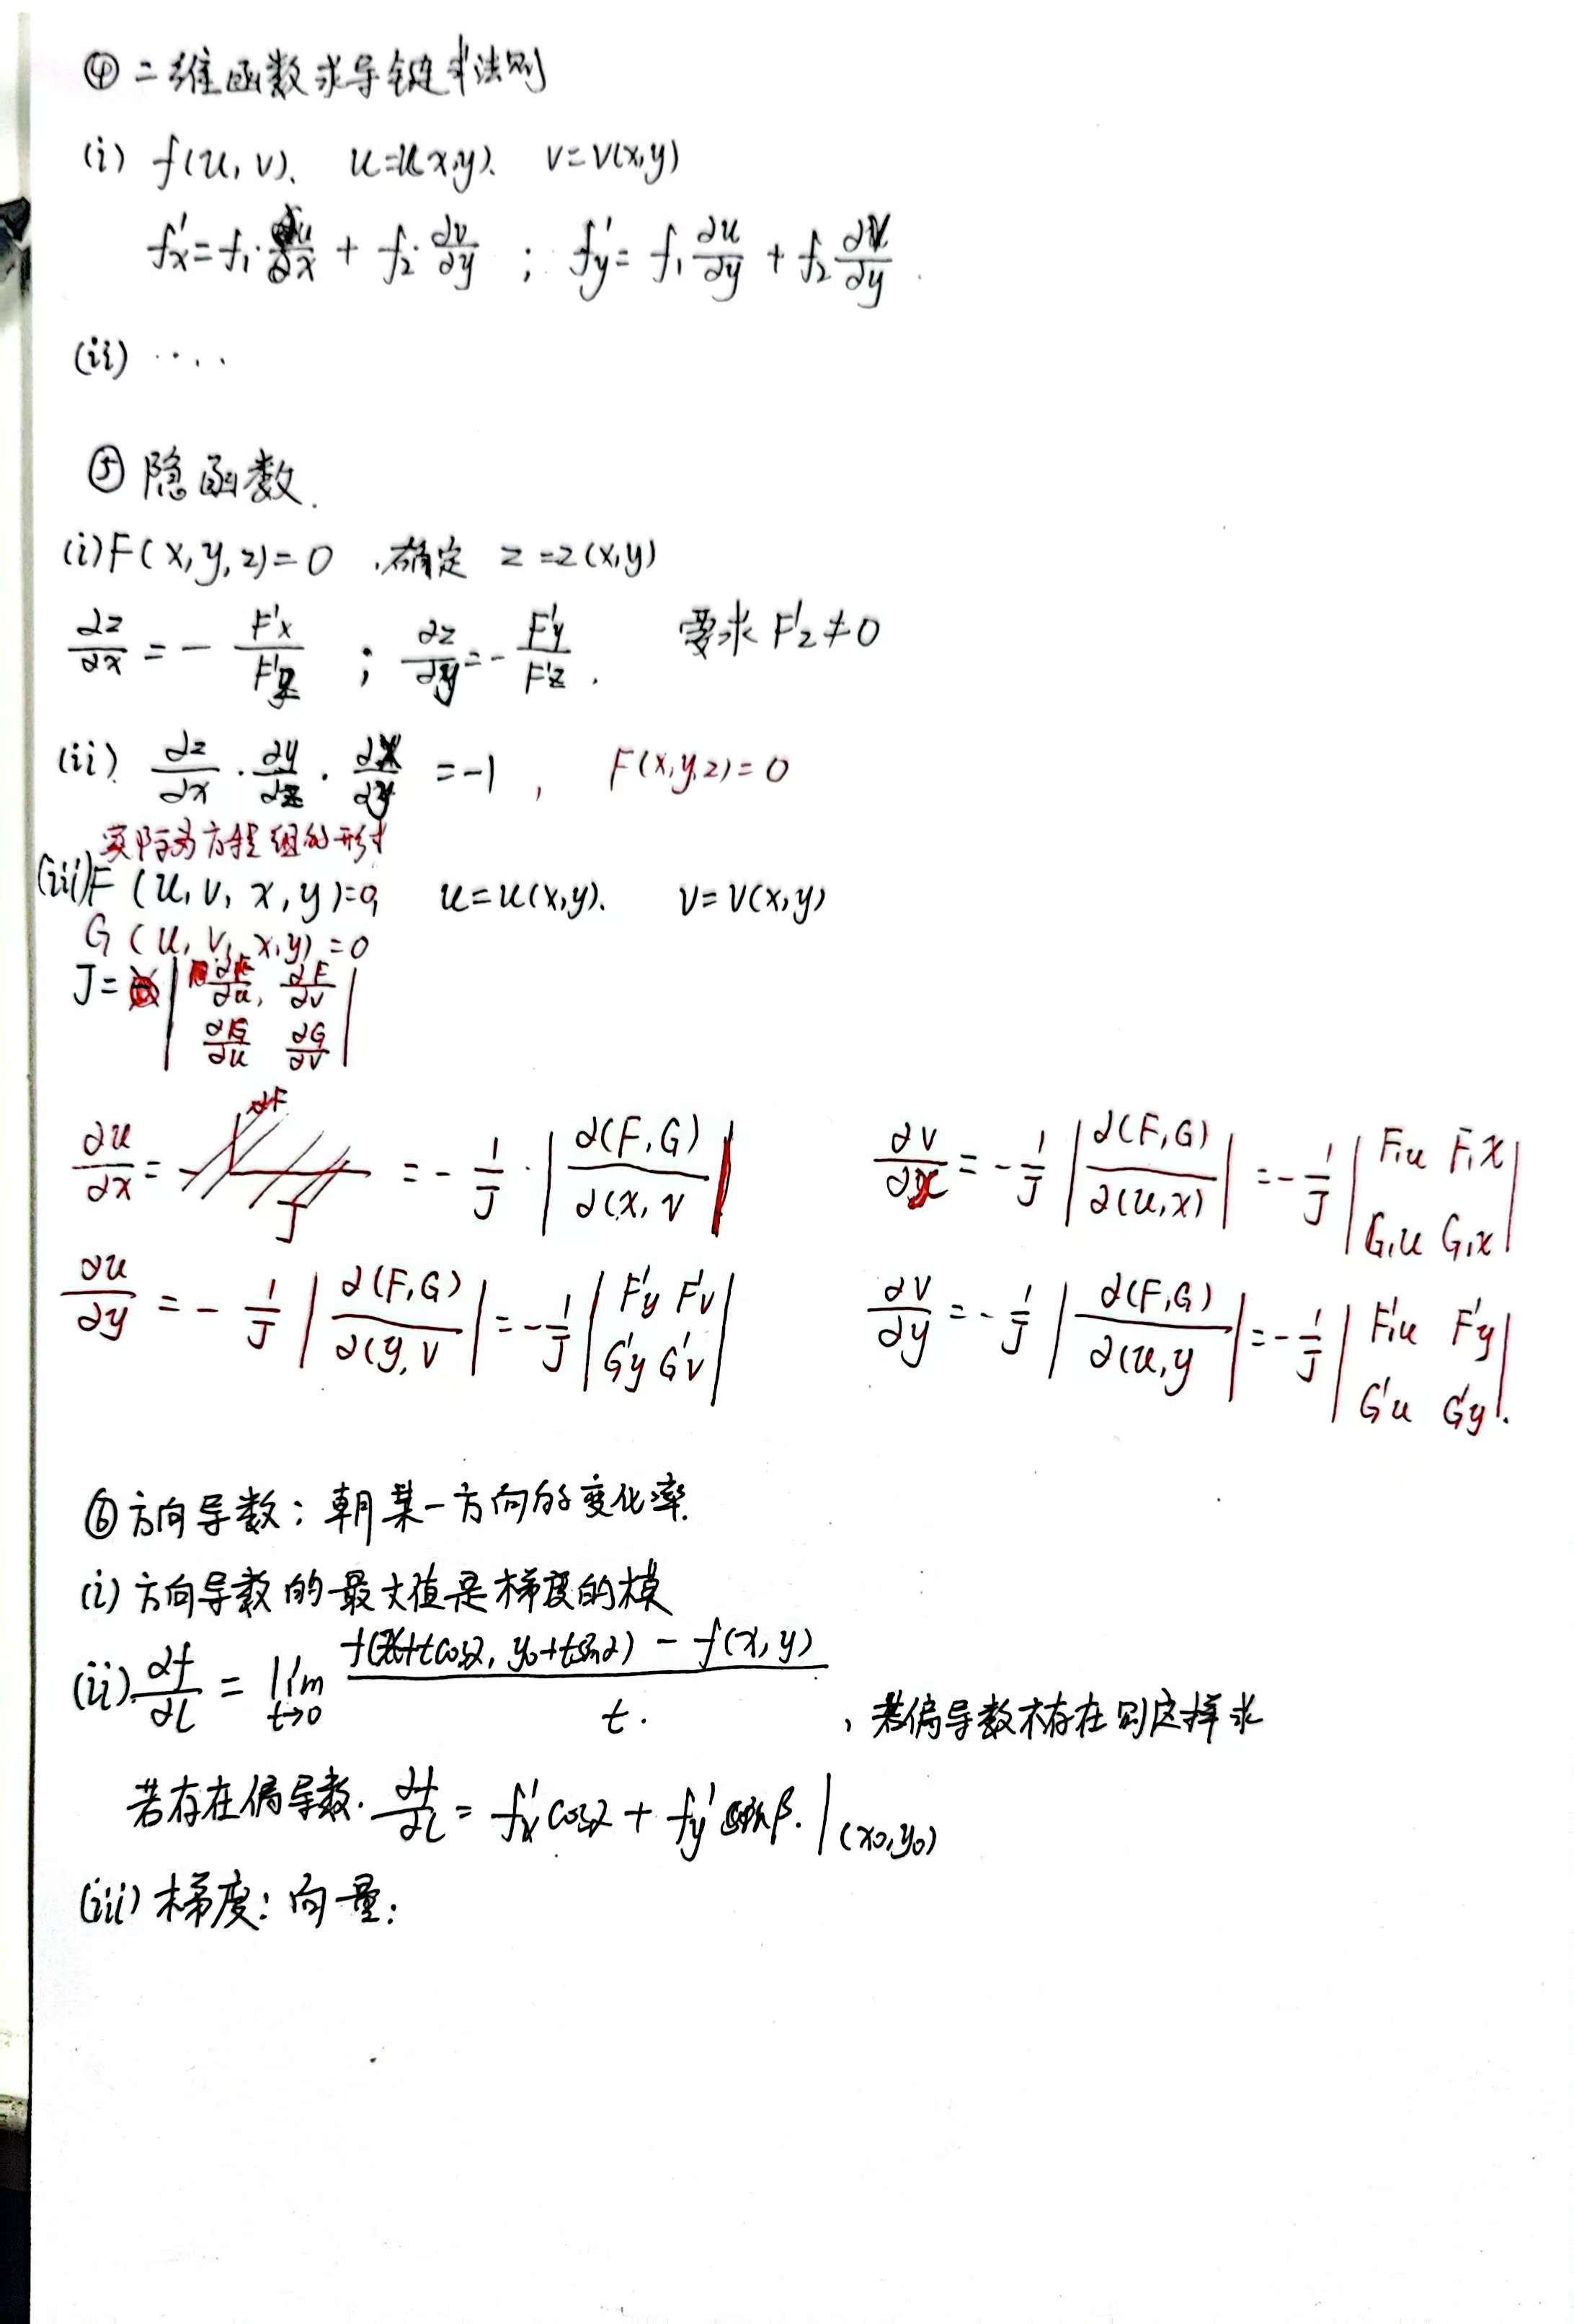 ④ 二维函数求导链式法则
(i) f(u, v). u=u(x,y). v=v(x,y)
f'x = f₁·∂u/∂x + f₂·∂v/∂y ; f'y = f₁ ∂u/∂y + f₂ ∂v/∂y .
(ii) ····
⑤ 隐函数.
(i) F(x, y, z)=0 ,确定 z=z(x,y)
∂z/∂x = - F'x/F'z ; ∂z/∂y = - F'y/F'z . 要求 F'z≠0
(ii). ∂z/∂x · ∂y/∂z · ∂x/∂y = -1 , F(x,y,z)=0
实际为方程组的形式
(iii) F (u, v, x, y)=0, u=u(x,y). v=v(x,y)
G (u, v, x,y) =0
J= | ∂F/∂u, ∂F/∂v |
| ∂G/∂u ∂G/∂v |
∂u/∂x = = - 1/J · | ∂(F,G)/∂(x, v | ∂v/∂x = - 1/J | ∂(F,G)/∂(u,x) | = - 1/J | F'u F'x |
| G'u G'x |
∂u/∂y = - 1/J | ∂(F,G)/∂(y, v | = - 1/J | F'y F'v | ∂v/∂y = - 1/J | ∂(F,G)/∂(u,y | = - 1/J | F'u F'y |
| G'y G'v | | G'u G'y |.
⑥ 方向导数: 朝某一方向的变化率.
(i) 方向导数的最大值是梯度的模
(ii). ∂f/∂l = lim t→0 f(x+tcosα, y₀+tsinα) - f(x, y) / t. , 若偏导数不存在则这样求
若存在偏导数. ∂f/∂l = f'x cosα + f'y sinβ. |(x₀,y₀)
(iii) 梯度: 向量: